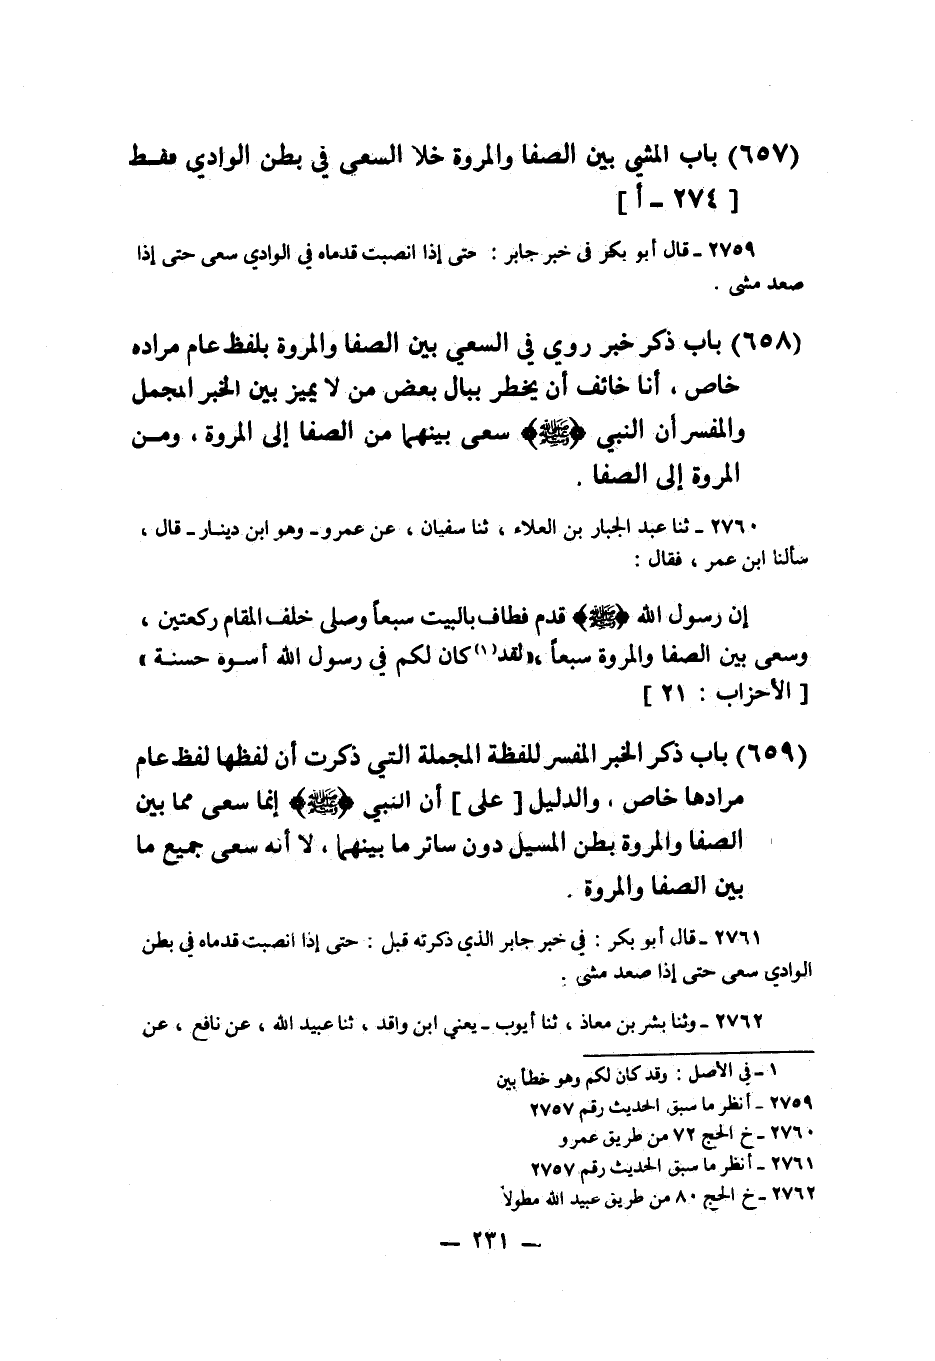 (٦٥٧) باب المشي بين الصفا والمروة خلا السعي في بطن الوادي فقـط
[ ٢٧٤ ـ أ ]
٢٧٥٩ ـ قال أبو بكر في خبر جابر : حتى إذا انصبت قدماه في الوادي سعى حتى إذا
صعد مشى .
(٦٥٨) باب ذكر خبر روي في السعي بين الصفا والمروة بلفظ عام مراده
خاص ، أنا خائف أن يخطر ببال بعض من لا يميز بين الخبر المجمل
والمفسر أن النبي ﴿ﷺ﴾ سعى بينهما من الصفا إلى المروة ، ومـن
المروة إلى الصفا .
٢٧٦٠ ـ ثنا عبد الجبار بن العلاء ، ثنا سفيان ، عن عمرو ـ وهو ابن دينـار ـ قال ،
سألنا ابن عمر ، فقال :
إن رسول الله ﴿ﷺ﴾ قدم فطاف بالبيت سبعاً وصلى خلف المقام ركعتين ،
وسعى بين الصفا والمروة سبعاً ،«لقد(١) كان لكم في رسول الله أسـوة حسنـة »
[ الأحزاب : ٢١ ]
(٦٥٩) باب ذكر الخبر المفسر للفظة المجملة التي ذكرت أن لفظها لفظ عام
مرادها خاص ، والدليل [ على ] أن النبي ﴿ﷺ﴾ إنما سعى مما بين
الصفا والمروة بطن المسيل دون سائر ما بينهما ، لا أنه سعى جميع ما
بين الصفا والمروة .
٢٧٦١ ـ قال أبو بكر : في خبر جابر الذي ذكرته قبل : حتى إذا انصبت قدماه في بطن
الوادي سعى حتى إذا صعد مشى .
٢٧٦٢ ـ وثنا بشر بن معاذ ، ثنا أيوب ـ يعني ابن واقد ، ثنا عبيد الله ، عن نافع ، عن
١ ـ في الأصل : وقد كان لكم وهو خطأ بين
٢٧٥٩ ـ أنظر ما سبق الحديث رقم ٢٧٥٧
٢٧٦٠ ـ خ الحج ٧٢ من طريق عمرو
٢٧٦١ ـ أنظر ما سبق الحديث رقم ٢٧٥٧
٢٧٦٢ ـ خ الحج ٨٠ من طريق عبيد الله مطولاً
— ٢٣١ —